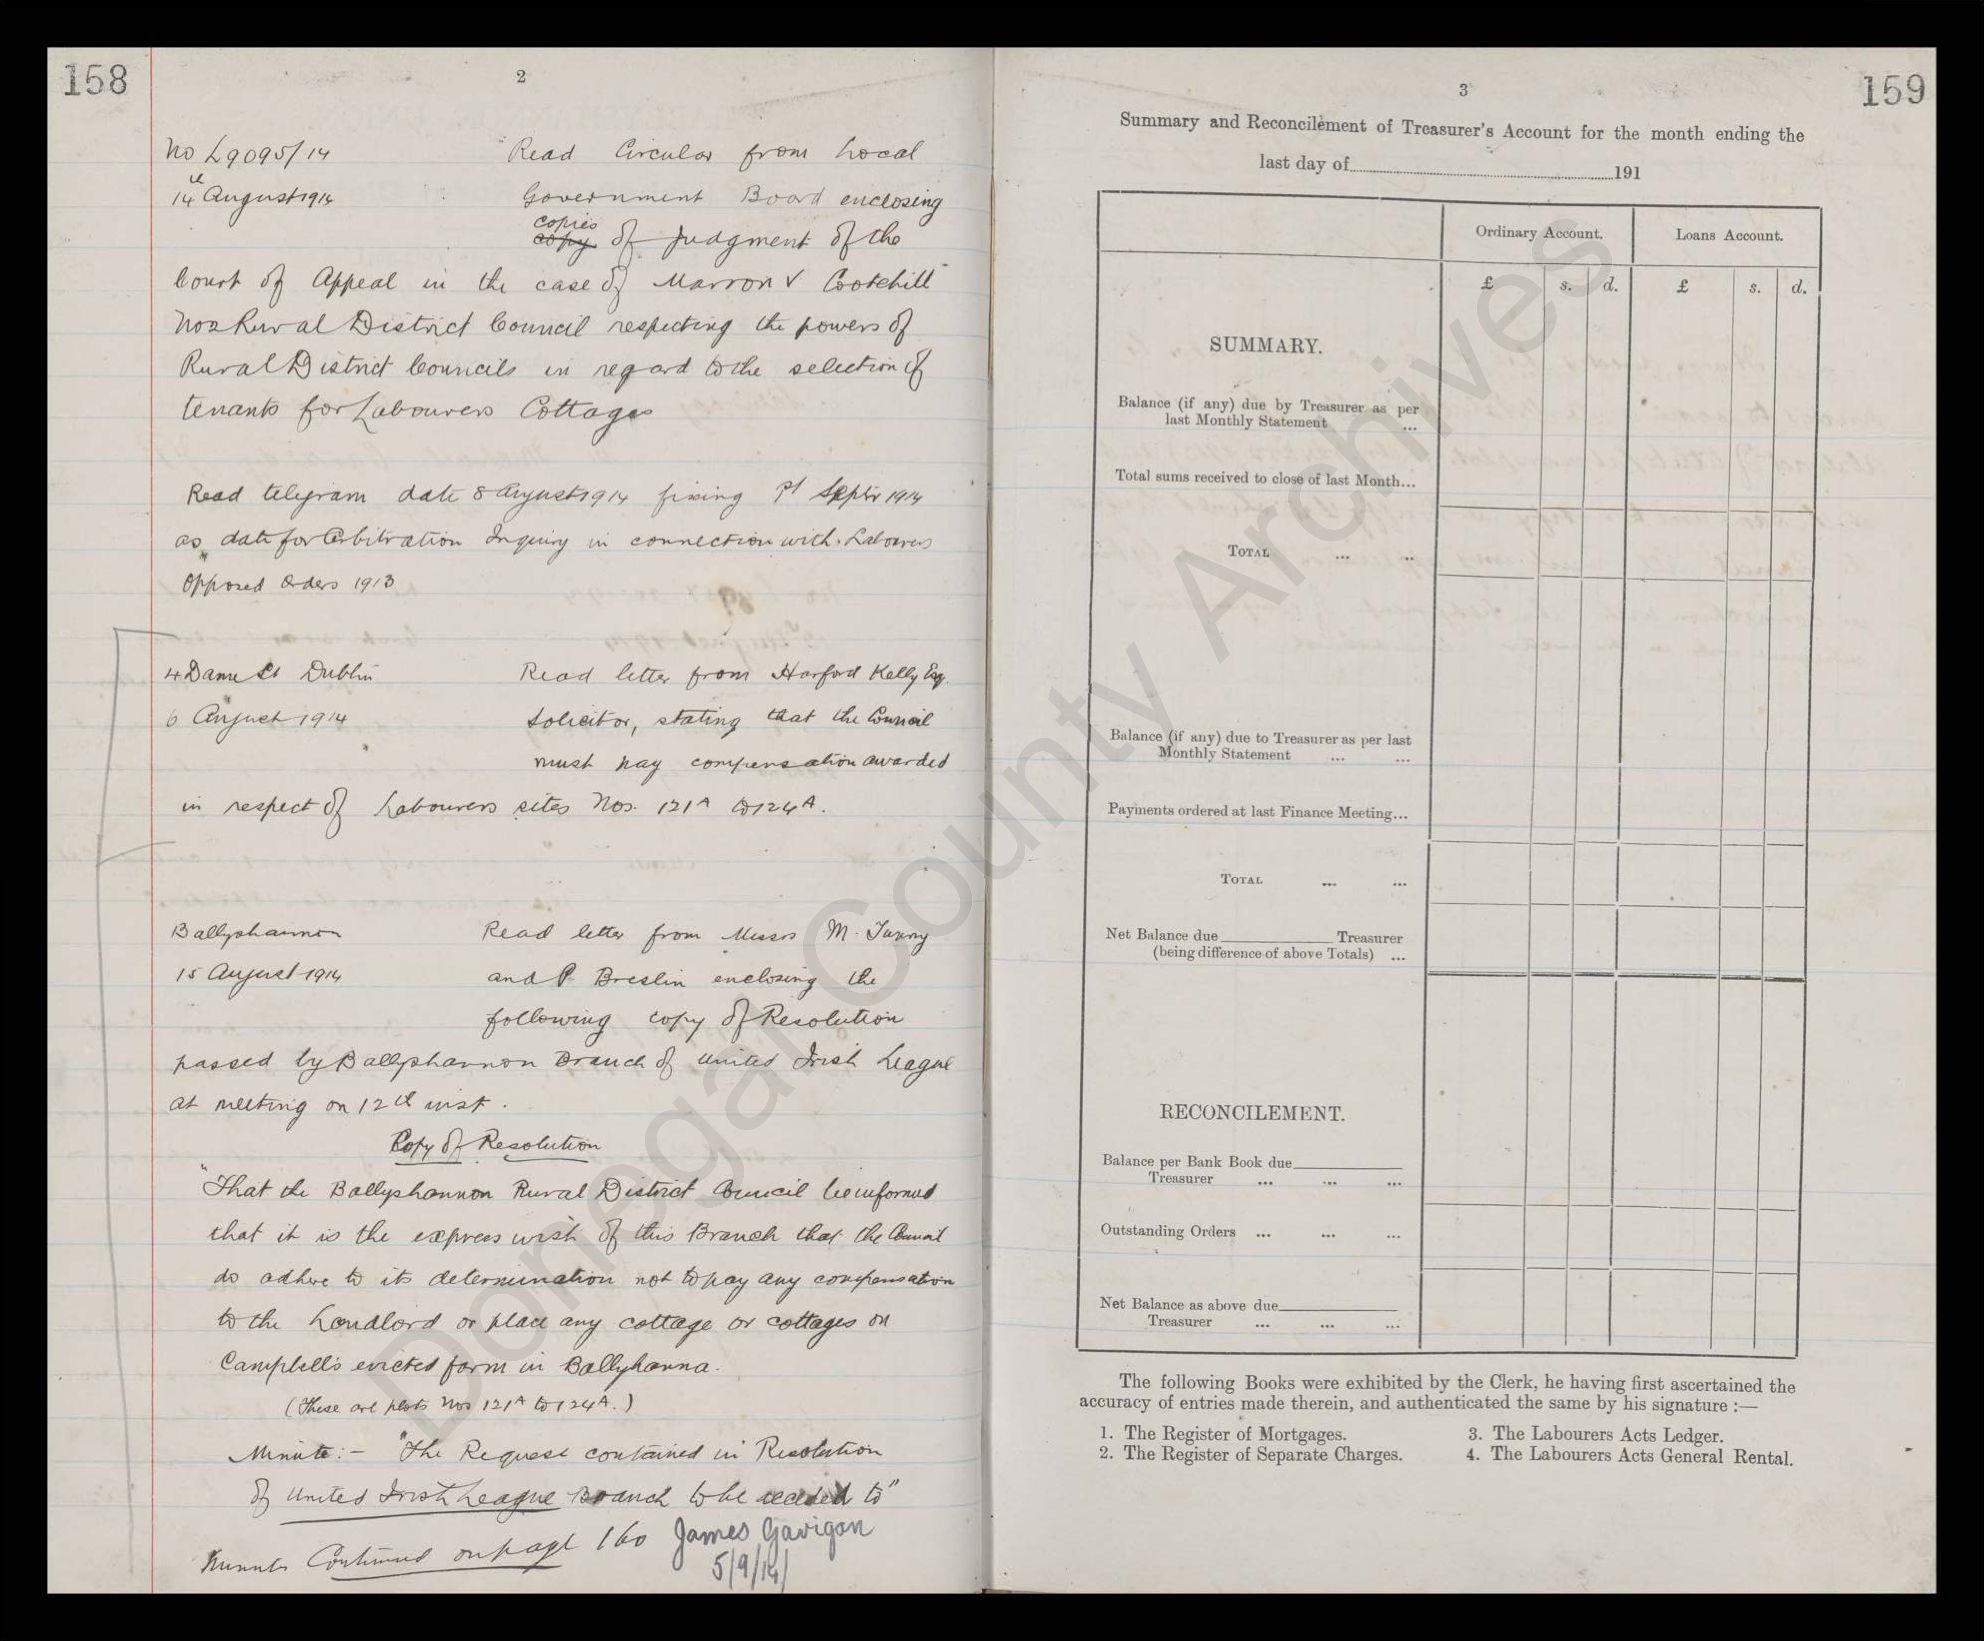 158
2
No L9095/14 Read Circular from Local
14th August 1914 Government Board enclosing
copies
copy of judgment of the
Court of Appeal in the case of Marron v Cootehill
No 2 Rural District Council respecting the powers of
Rural District Councils in regard to the selection of
tenants for Labourers Cottages
Read telegram date 8 August 1914 fixing 1st Septbr 1914
as date for Arbitration Inquiry in connection with Labourers
Opposed Orders 1913
4 Dame St Dublin Read letter from Harford Kelly Esq.
6 August 1914 Solicitor, stating that the Council
must pay compensation awarded
in respect of Labourers sites Nos. 121A to 124A.
Ballyshannon Read letter from Messrs M. Tunny
15 August 1914 and P. Breslin enclosing the
following copy of Resolution
passed by Ballyshannon Branch of United Irish League
at meeting on 12th inst.
Copy of Resolution
"That the Ballyshannon Rural District Council be informed
that it is the express wish of this Branch that the Council
do adhere to its determination not to pay any compensation
to the Landlord or place any cottage or cottages on
Campbell's evicted farm in Ballyhanna.
(These are plots Nos 121A to 124A.)
Minute:- "The Request contained in Resolution
of United Irish League Branch to be acceded to"
Minutes Continued on page 160 James Gavigan
5/9/14
159
3
Summary and Reconcilement of Treasurer's Account for the month ending the
last day of 191
Ordinary Account. Loans Account.
£ s. d. £ s. d.
SUMMARY.
Balance (if any) due by Treasurer as per
last Monthly Statement ...
Total sums received to close of last Month...
TOTAL ... ..
Balance (if any) due to Treasurer as per last
Monthly Statement ... ...
Payments ordered at last Finance Meeting...
TOTAL ... ...
Net Balance due Treasurer
(being difference of above Totals) ...
RECONCILEMENT.
Balance per Bank Book due
Treasurer ... ... ...
Outstanding Orders ... ... ...
Net Balance as above due
Treasurer ... ... ...
The following Books were exhibited by the Clerk, he having first ascertained the
accuracy of entries made therein, and authenticated the same by his signature :—
1. The Register of Mortgages. 3. The Labourers Acts Ledger.
2. The Register of Separate Charges. 4. The Labourers Acts General Rental.
Donegal County Archives